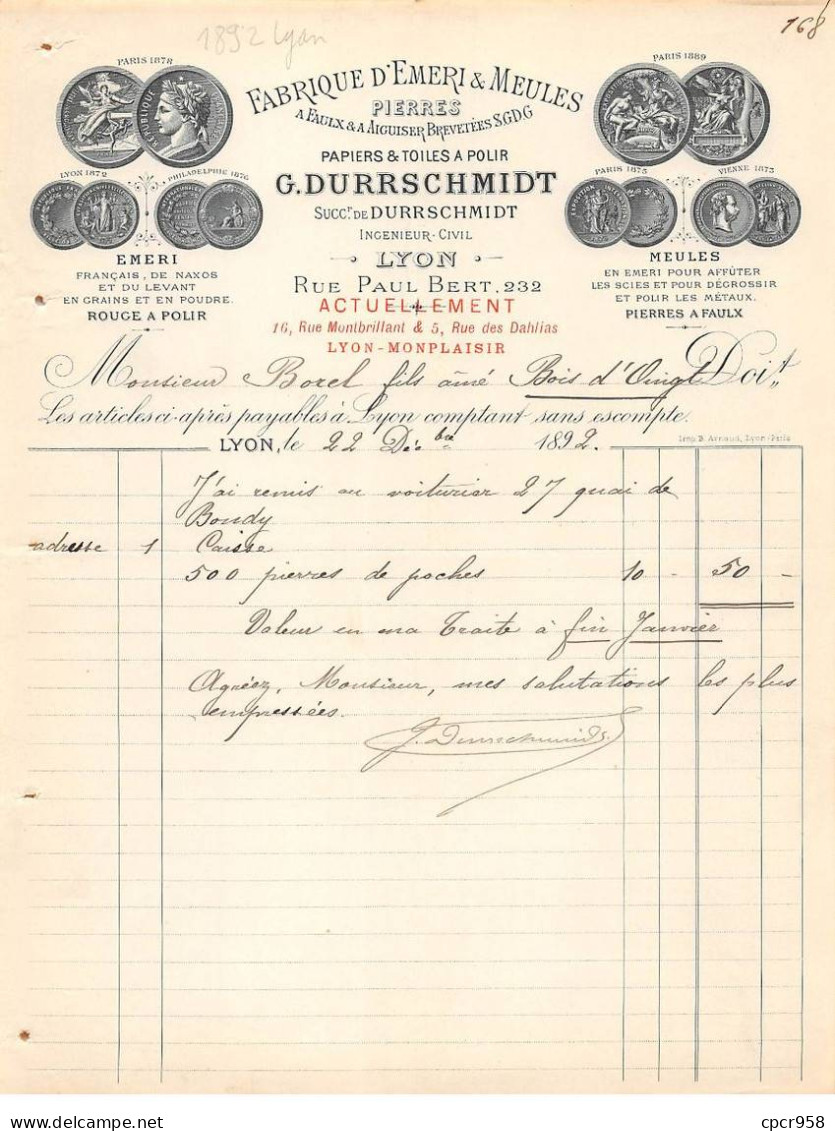 168
1892 Lyon
PARIS 1878
PARIS 1889
FABRIQUE D'EMERI & MEULES
PIERRES
A FAULX & A AIGUISER BREVETÉES S.G.D.G
PAPIERS & TOILES A POLIR
LYON 1872
PHILADELPHIE 1876
PARIS 1875
VIENNE 1873
G. DURRSCHMIDT
SUCCR. DE DURRSCHMIDT
INGENIEUR-CIVIL
LYON
RUE PAUL BERT, 232
EMERI
FRANÇAIS, DE NAXOS
ET DU LEVANT
EN GRAINS ET EN POUDRE.
ROUGE A POLIR
MEULES
EN EMERI POUR AFFÛTER
LES SCIES ET POUR DÉGROSSIR
ET POLIR LES MÉTAUX.
PIERRES A FAULX
ACTUELLEMENT
16, Rue Montbrillant & 5, Rue des Dahlias
LYON-MONPLAISIR
Monsieur Borel fils âiné Bois d'Oingt Doit
Les articles ci-après payables à Lyon comptant sans escompte.
LYON, le 22 Débre 1892.
Imp. B. Arnaud, Lyon-Paris
J'ai remis au voiturier 27 quai de
Bondy
adresse 1 Caisse
500 pierres de poches 10 - 50 -
Valeur en ma Traite à fin Janvier
Agréez, Monsieur, mes salutations les plus
empressées.
G. Durrschmidt
cpcr958